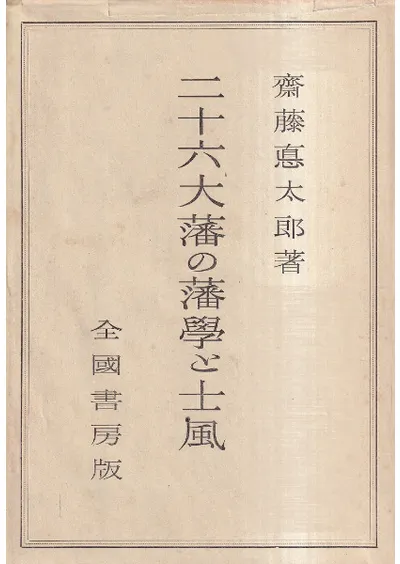 齋藤悳太郎著
二十六大藩の藩學と士風
全國書房版